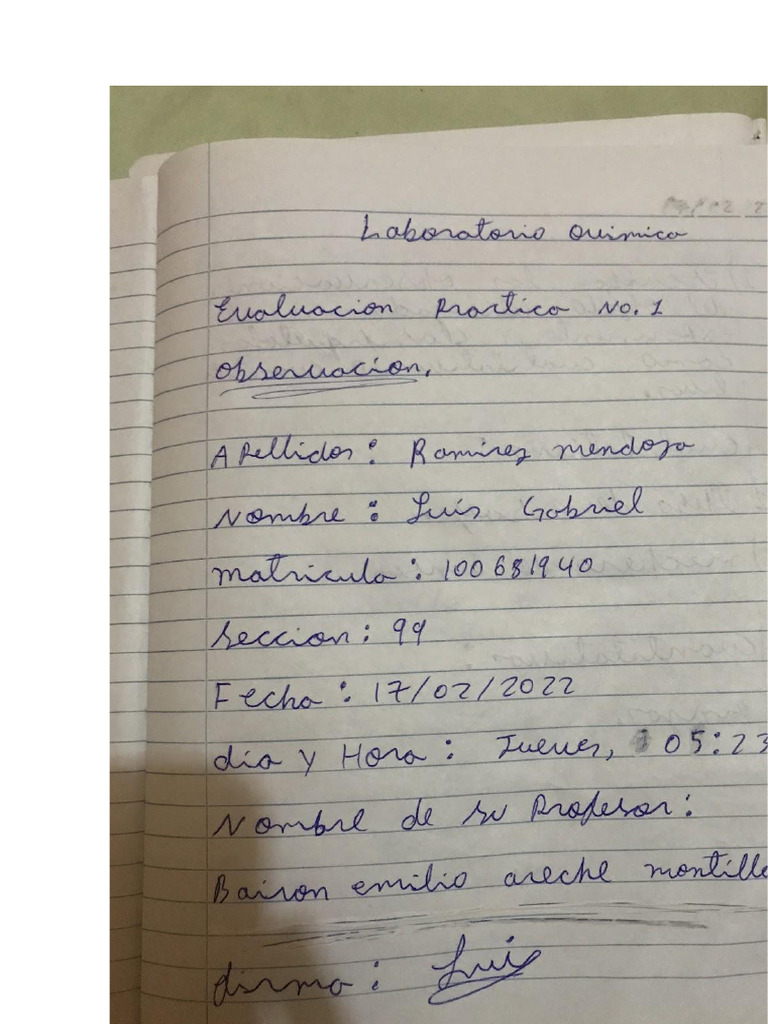 Laboratorio Quimica
Evaluacion Practica No. 1
Observacion.
Apellidos: Ramirez mendoza
Nombre: Luis Gabriel
matricula: 100681940
Seccion: 99
Fecha: 17/02/2022
dia y Hora: Jueves, 05:23
Nombre de su Profesor:
Bairon emilio areche montilla
firma: Luis